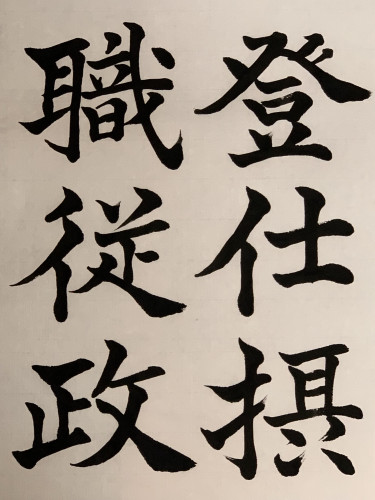 登仕摂
職従政